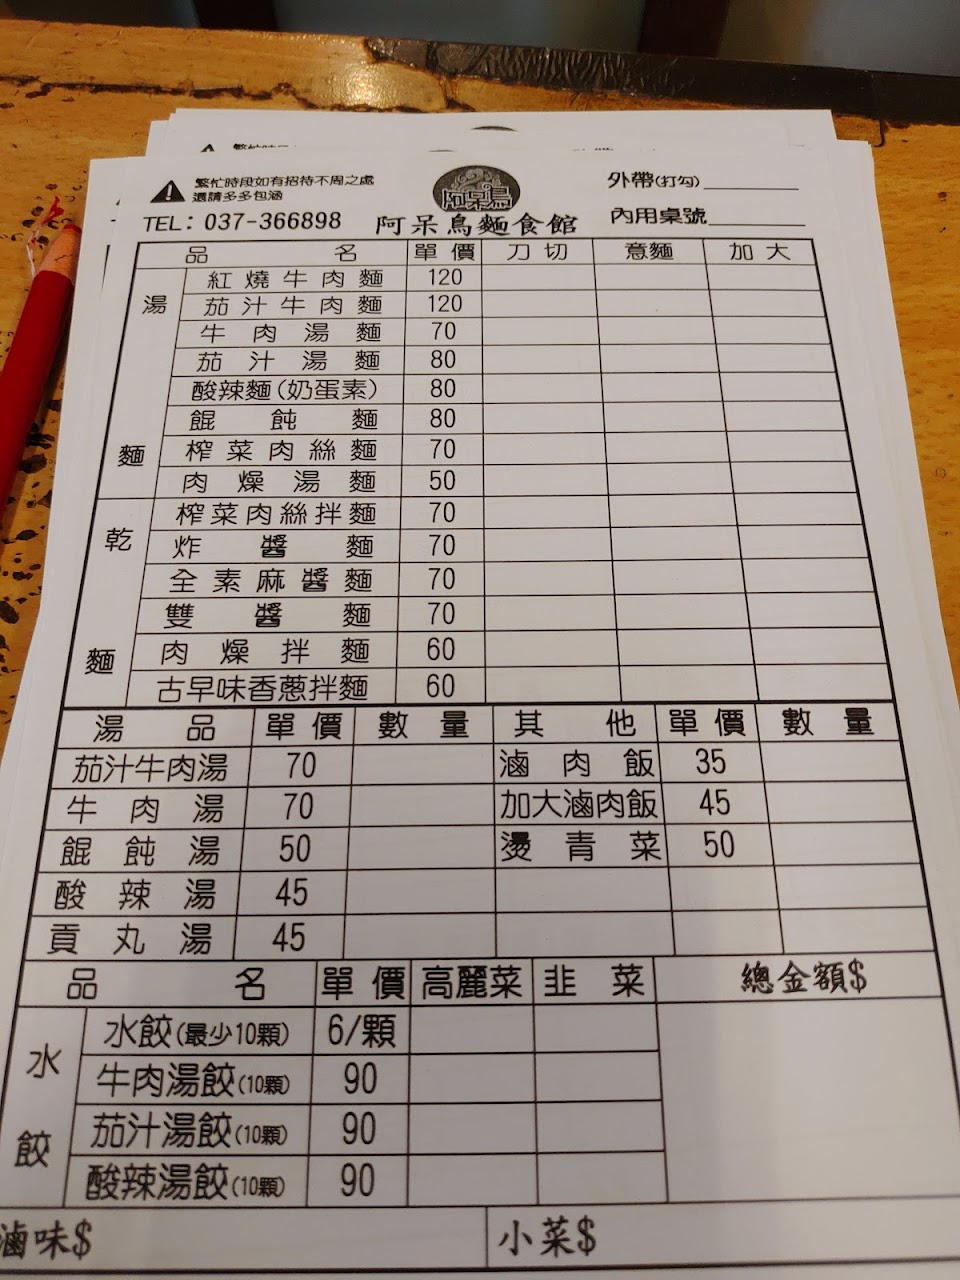 繁忙時段如有招待不周之處
還請多多包涵
阿呆鳥
外帶(打勾)
TEL: 037-366898 阿呆鳥麵食館 內用桌號
品名 單價 刀切 意麵 加大
湯麵
紅燒牛肉麵 120
茄汁牛肉麵 120
牛肉湯麵 70
茄汁湯麵 80
酸辣麵(奶蛋素) 80
餛飩麵 80
榨菜肉絲麵 70
肉燥湯麵 50
乾麵
榨菜肉絲拌麵 70
炸醬麵 70
全素麻醬麵 70
雙醬麵 70
肉燥拌麵 60
古早味香蔥拌麵 60
湯品 單價 數量 其他 單價 數量
茄汁牛肉湯 70 滷肉飯 35
牛肉湯 70 加大滷肉飯 45
餛飩湯 50 燙青菜 50
酸辣湯 45
貢丸湯 45
品名 單價 高麗菜 韭菜 總金額$
水餃
水餃(最少10顆) 6/顆
牛肉湯餃(10顆) 90
茄汁湯餃(10顆) 90
酸辣湯餃(10顆) 90
滷味$ 小菜$